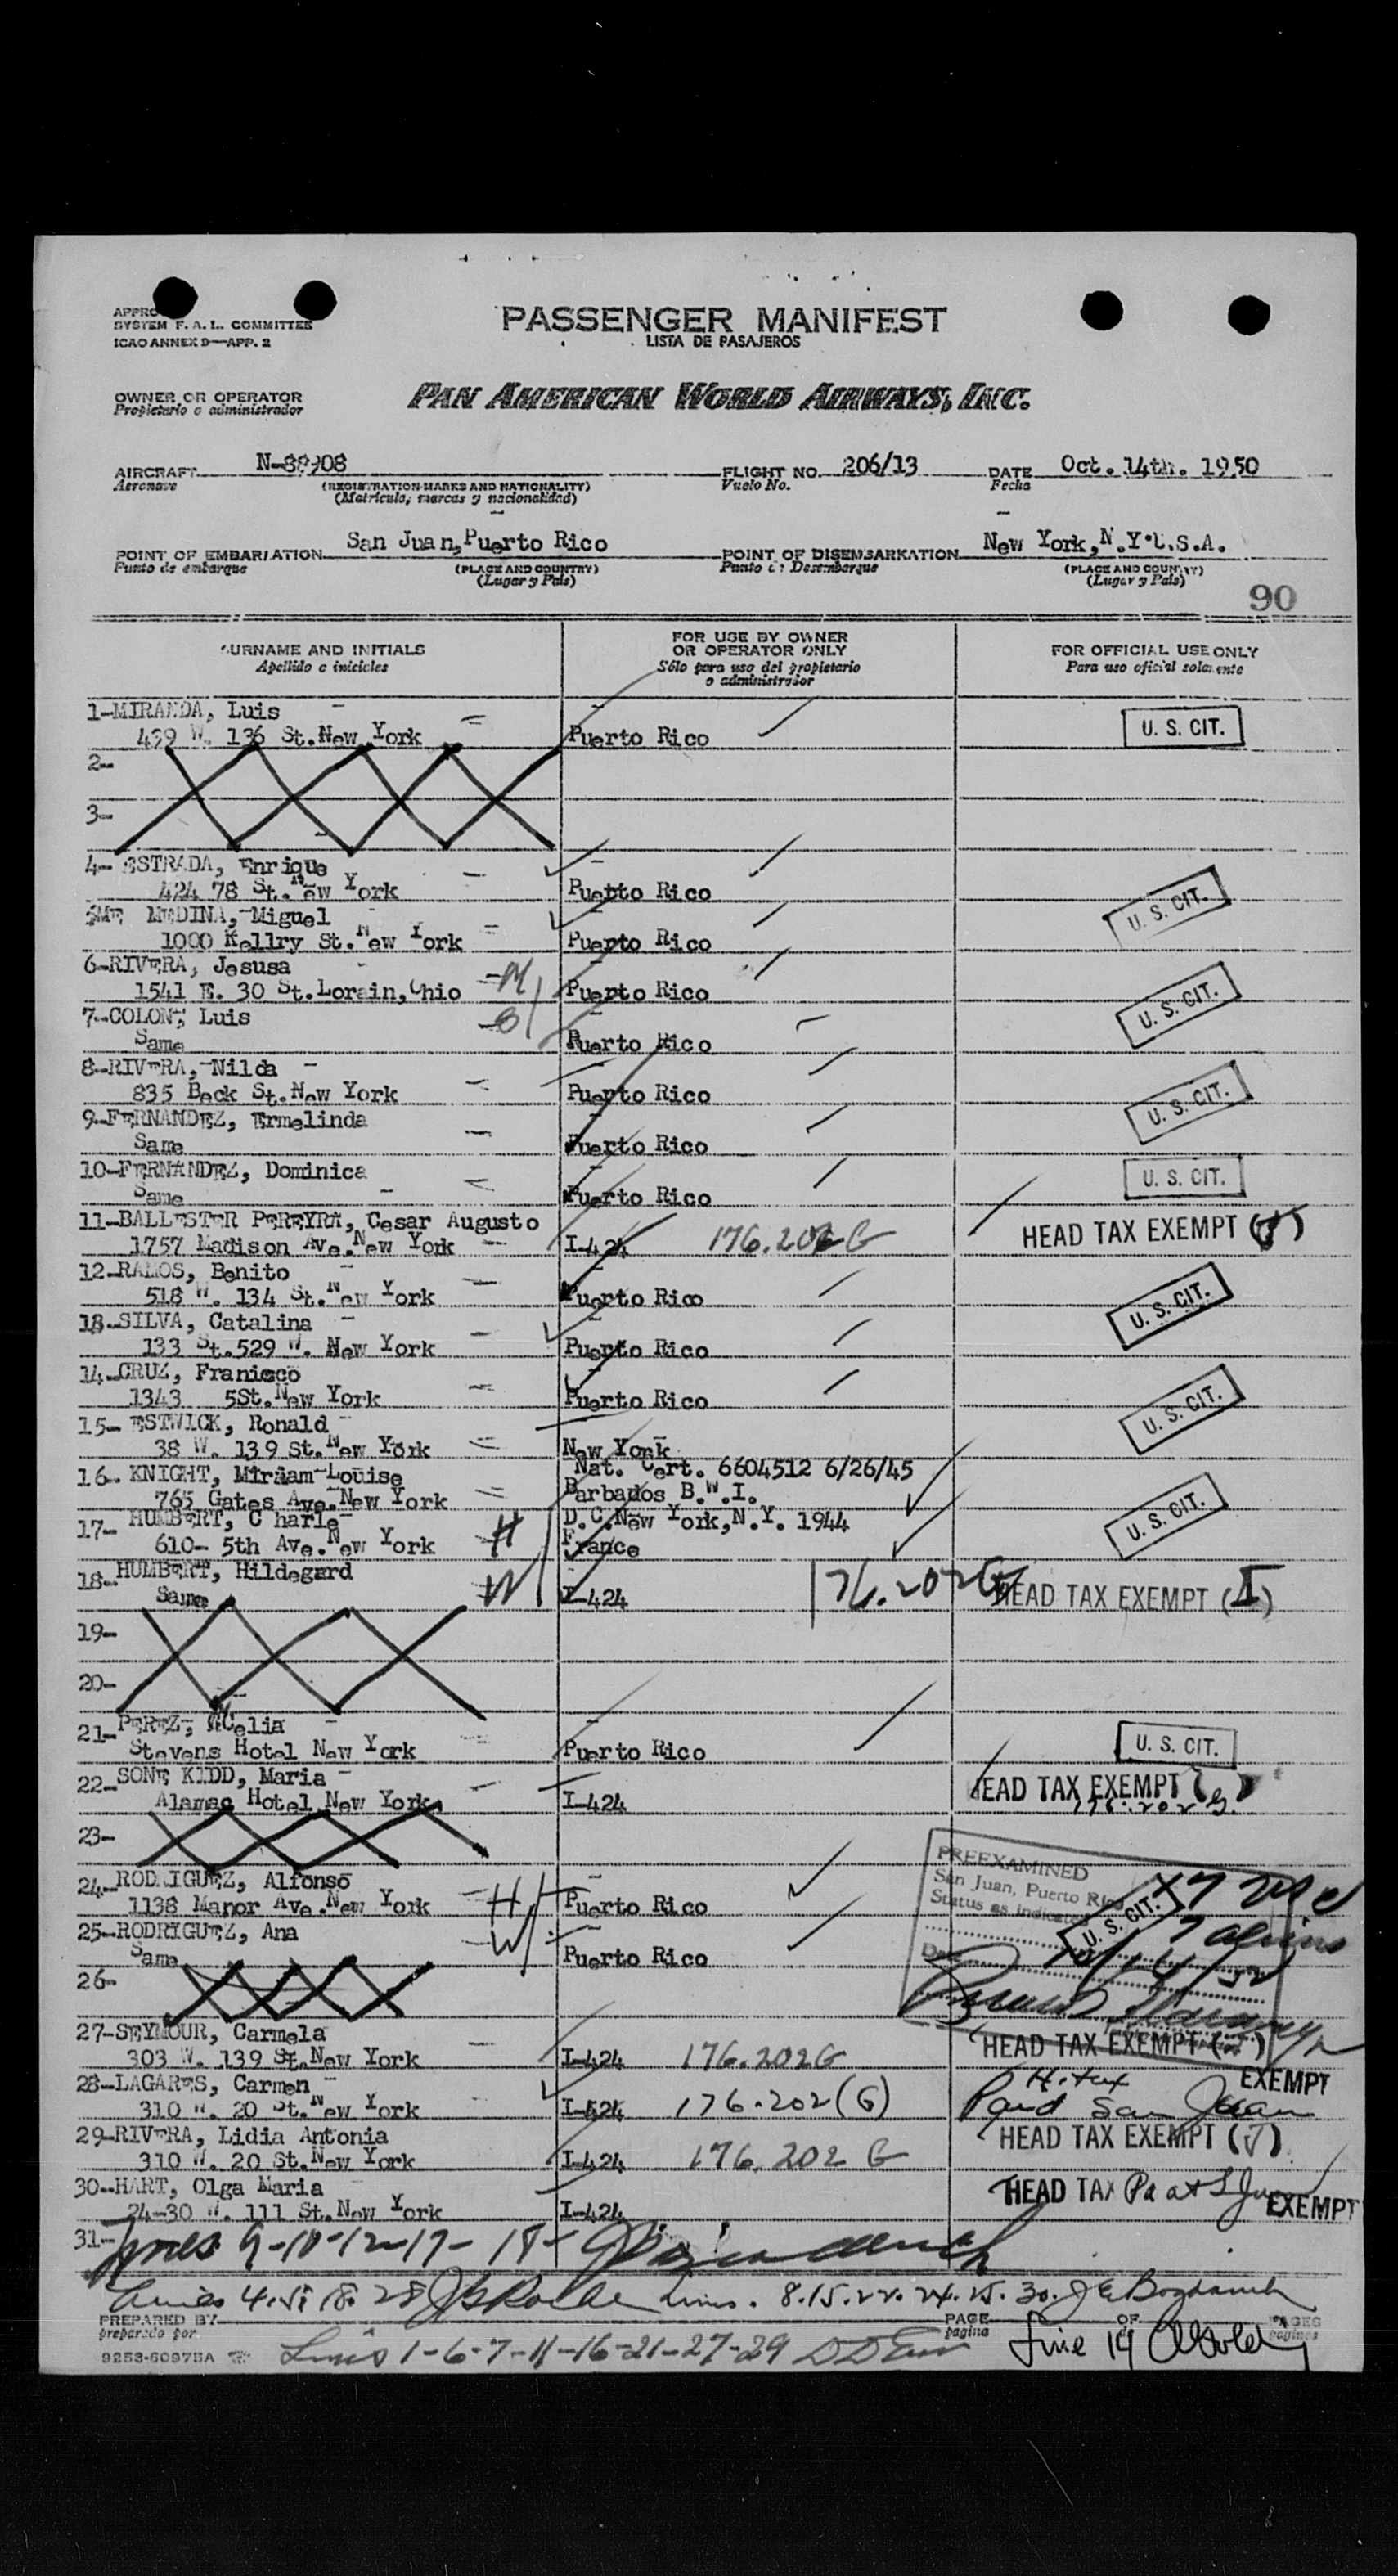 SYSTEM F. A. L. COMMITTEE
ICAO ANNEX 9—APP. 2
PASSENGER MANIFEST
LISTA DE PASAJEROS
OWNER OR OPERATOR
Propietario o administrador
PAN AMERICAN WORLD AIRWAYS, INC.
AIRCRAFT
Aeronave
(REGISTRATION MARKS AND NATIONALITY)
(Matricula, marcas y nacionalidad)
FLIGHT NO. 206/13
Vuelo No.
DATE Oct. 14th. 1950
Fecha
POINT OF EMBARKATION San Juan, Puerto Rico
Punto de embarque
(PLACE AND COUNTRY)
(Lugar y Pais)
POINT OF DISEMBARKATION New York, N.Y. U.S.A.
Punto de Desembarque
(PLACE AND COUNTRY)
(Lugar y Pais)
90
SURNAME AND INITIALS
Apellido e iniciales
FOR USE BY OWNER
OR OPERATOR ONLY
Sólo para uso del propietario
o administrador
FOR OFFICIAL USE ONLY
Para uso oficial solamente
1-MIRANDA, Luis
W. 136 St. New York Puerto Rico U. S. CIT.
2-
3-
4- ESTRADA, Enrique
424 78 St. New York Puerto Rico U. S. CIT.
MEDINA, Miguel
1000 Kellry St. New York Puerto Rico
6-RIVERA, Jesusa
1541 E. 30 St. Lorain, Ohio Puerto Rico U. S. CIT.
7-COLON, Luis
Same Puerto Rico
8-RIVERA, Nilda
835 Beck St. New York Puerto Rico U. S. CIT.
9-FERNANDEZ, Ermelinda
Same Puerto Rico
10-FERNANDEZ, Dominica
Same Puerto Rico U. S. CIT.
11-BALLESTER PEREYRA, Cesar Augusto
1757 Madison Ave. New York I-424 176.202 G HEAD TAX EXEMPT
12-RAMOS, Benito
518 W. 134 St. New York Puerto Rico U. S. CIT.
13-SILVA, Catalina
133 St. 529 W. New York Puerto Rico
14-CRUZ, Franisco
1343 5St. New York Puerto Rico U. S. CIT.
15- ESTWICK, Ronald
38 W. 139 St. New York New York
16- KNIGHT, Miriam Louise Nat. Cert. 6604512 6/26/45
765 Gates Ave. New York Barbados B.W.I. U. S. CIT.
17- HUMBERT, Charle D.C. New York, N.Y. 1944
610- 5th Ave. New York H France
18-HUMBERT, Hildegard
Same W I-424 176.202G HEAD TAX EXEMPT (I)
19-
20-
21-PEREZ, Celia
Stevens Hotel New York Puerto Rico U. S. CIT.
22-SONE KIDD, Maria
Alamac Hotel New York I-424 HEAD TAX EXEMPT
176.202 G.
23-
24-RODRIGUEZ, Alfonso
1138 Manor Ave. New York H Puerto Rico
PREEXAMINED
San Juan, Puerto Rico
Status as indicated
U. S. CIT.
25-RODRIGUEZ, Ana
Same W Puerto Rico
26-
27-SEYMOUR, Carmela
303 W. 139 St. New York I-424 176.202G HEAD TAX EXEMPT
28-LAGARES, Carmen
310 W. 20 St. New York I-424 176.202(G) H. tax EXEMPT
Paid San Juan
29-RIVERA, Lidia Antonia
310 W. 20 St. New York I-424 176.202 G HEAD TAX EXEMPT
30-HART, Olga Maria
24-30 W. 111 St. New York I-424 HEAD TAX Pd at S Juan EXEMPT
31- Lines 9-10-12-17-18-
Lines 4.5. 28 Lines. 8.15.22.24.25.30.
PREPARED BY
preparado por
PAGE
pagina
OF
PAGES
paginas
9253-60975A
Lines 1-6-7-11-16-21-27-29
Line 14